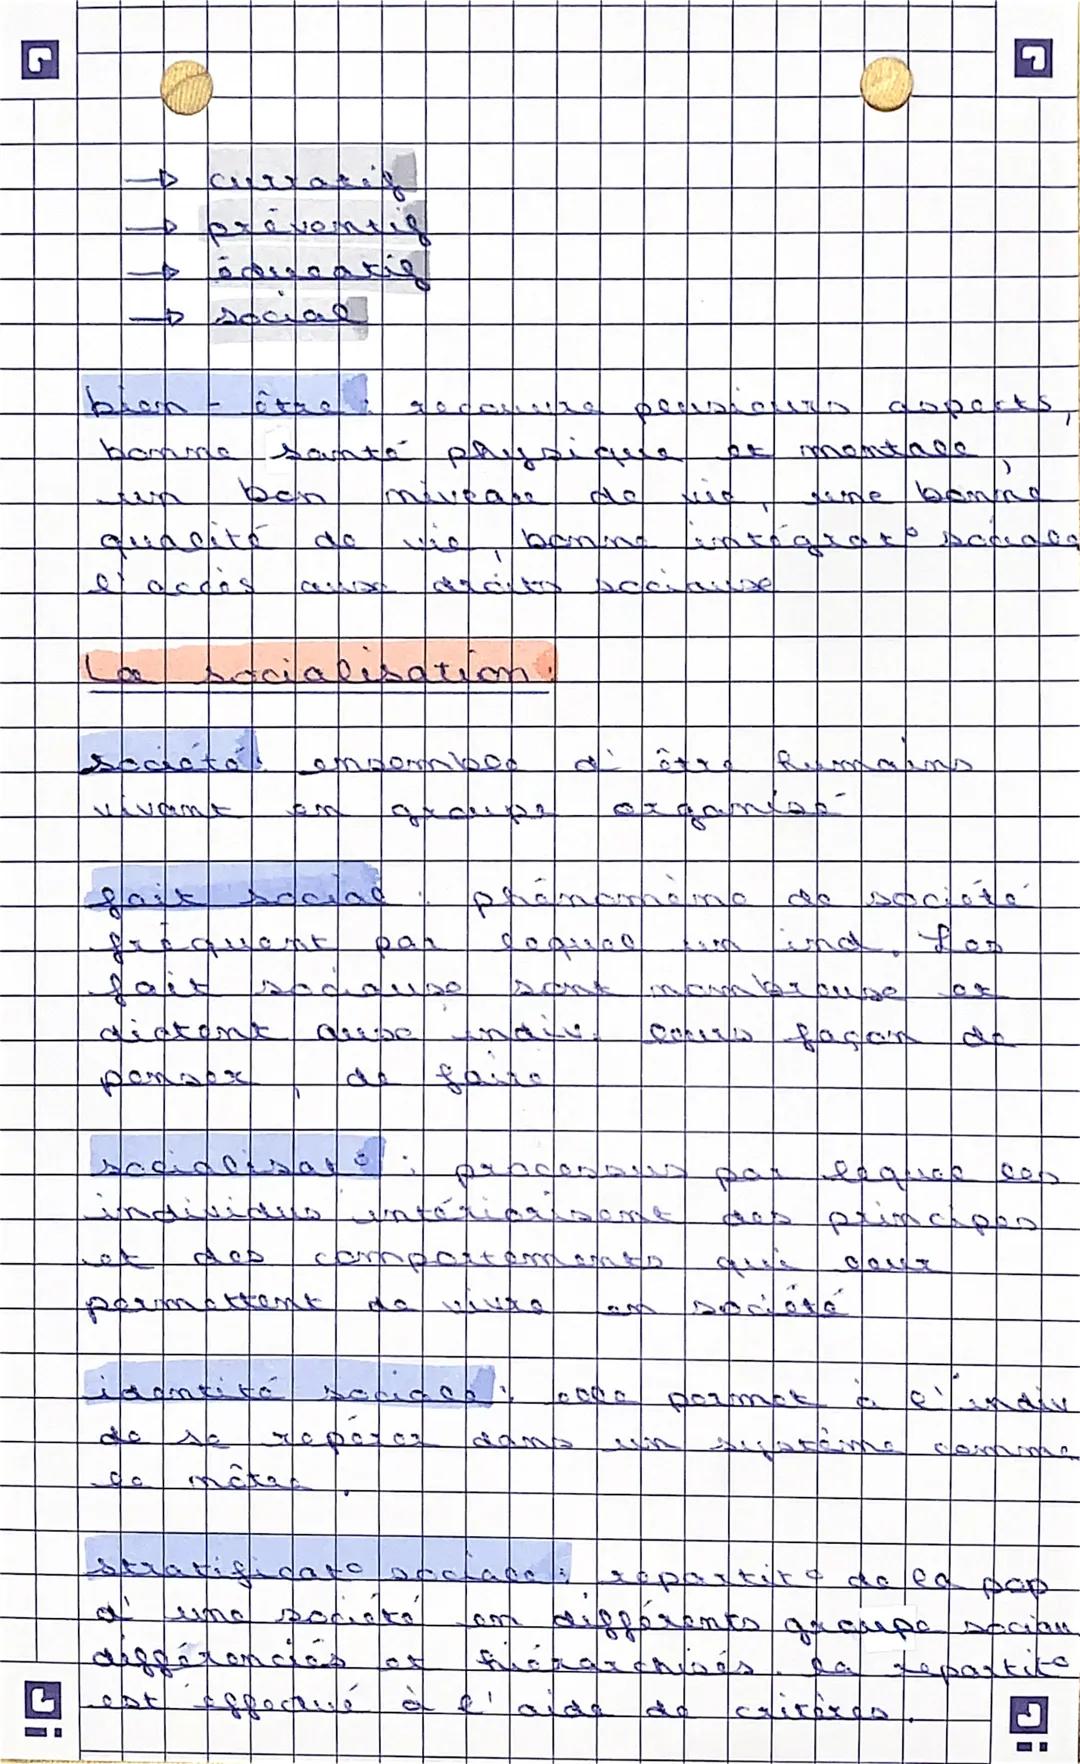 → curratif
→ préventif
→ éducatif
→ social
bien-être : recouvre plusieurs aspects,
bonne santé physique et mentale,
un bon niveau de vie, une bonne
qualité de vie, bonne intégrat° sociale
l'accès aux droits sociaux
La socialisation :
société : ensemble d'être humains
vivant en groupe organisé
fait social : phénomène de société
fréquent par lequel un ind. Les
fait sociaux sont nombreux et
dictent aux indiv. leurs façon de
penser, de faire
socialisat° : processus par lequel les
individus intériorisent des principes
et des comportements qui leur
permettent de vivre en société
identité sociale : elle permet à l'indiv
de se repérer dans un système comme
le nôtre.
stratificat° sociale : repartit° de la pop
d'une société en différents groupe sociau
différenciés et hiérarchisés. La repartit°
est effectué à l'aide de critères.